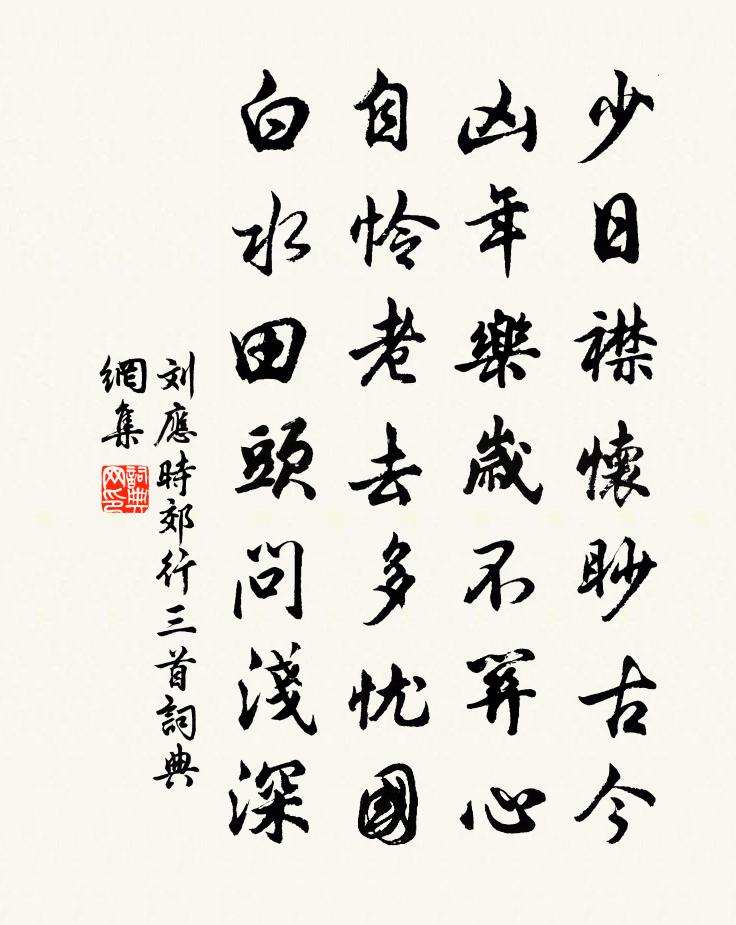 少日襟懷眇古今
凶年樂歲不關心
自怜老去多忧國
白水田頭問淺深
刘應時郊行三首詞典
網集
詞典
网印